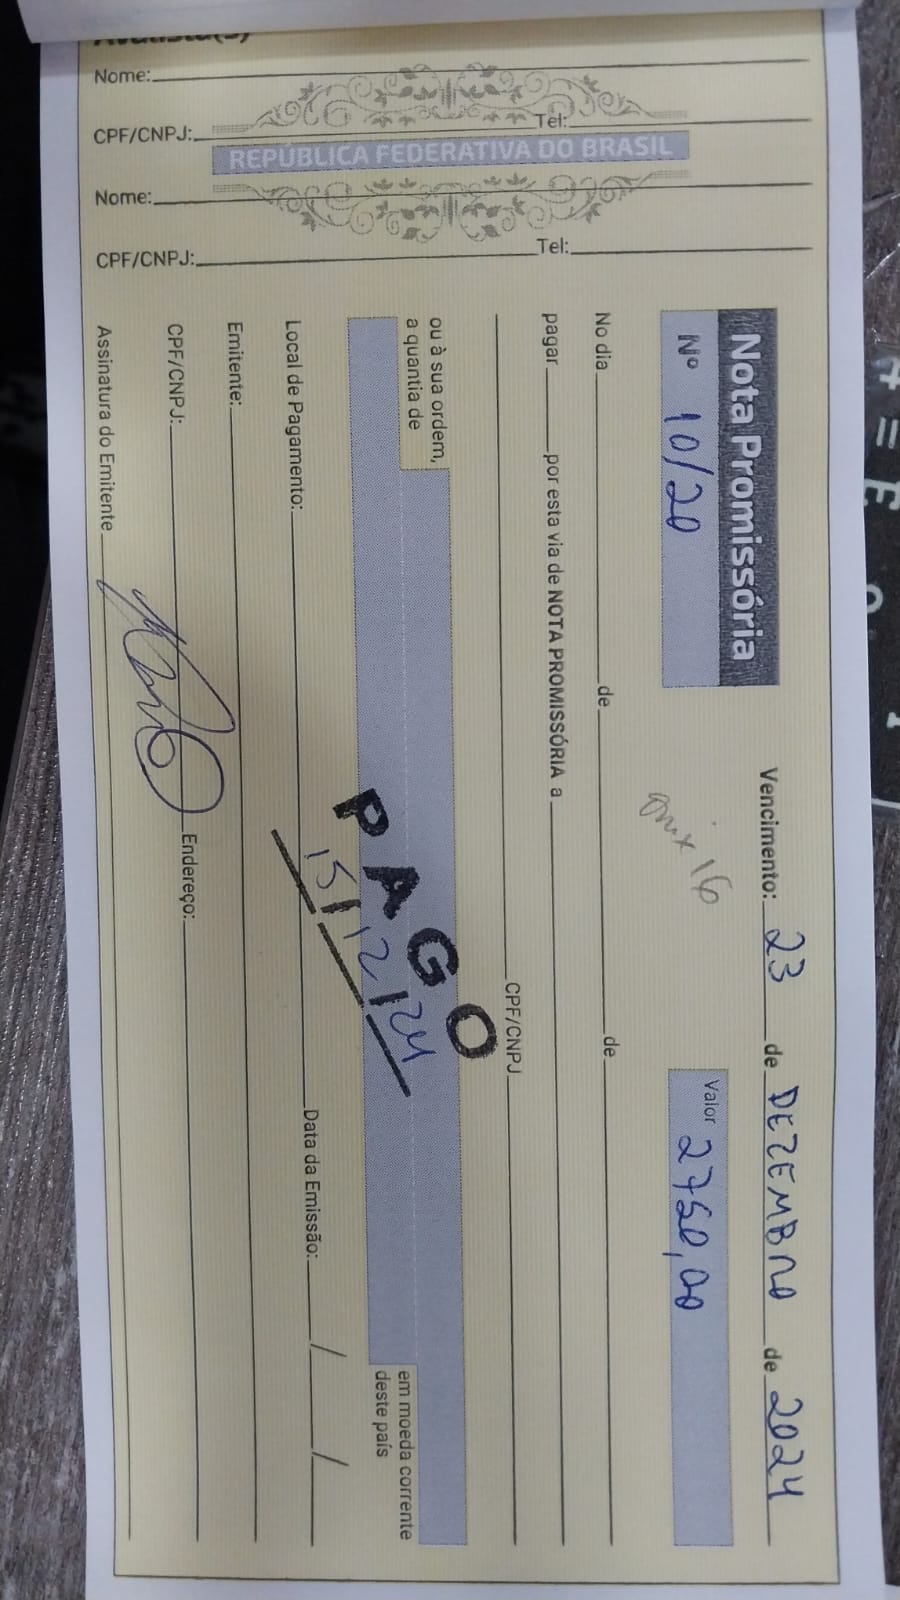 Avalista(s)
Nome:
CPF/CNPJ: Tel:
REPÚBLICA FEDERATIVA DO BRASIL
Nome:
CPF/CNPJ: Tel:
Nota Promissória
Vencimento: 23 de DEZEMBRO de 2024
Nº 10/20
Onix 16
Valor 2750,00
No dia de de
pagar por esta via de NOTA PROMISSÓRIA a
CPF/CNPJ
ou à sua ordem,
a quantia de
em moeda corrente
deste país
PAGO
15/12/24
Local de Pagamento: Data da Emissão: / /
Emitente:
CPF/CNPJ: Endereço:
Assinatura do Emitente